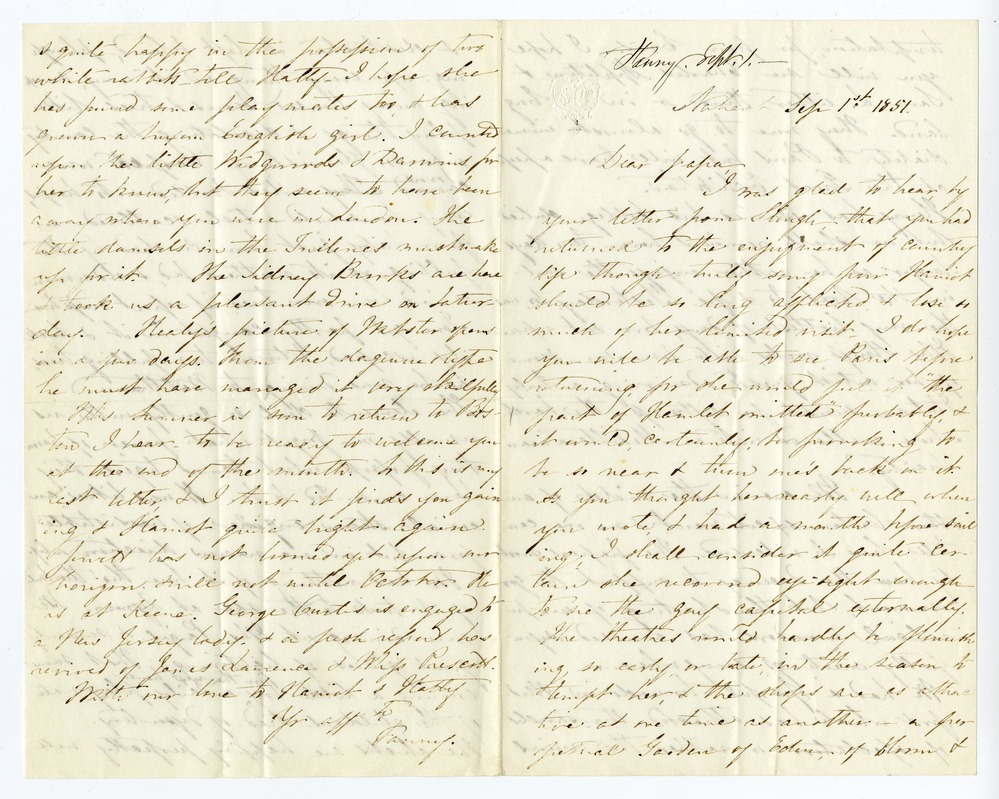 Fanny. Sept. 1. —
Nahant Sep 1st 1851.
Dear papa,
I was glad to hear by
your letter from Slough that you had
returned to the enjoyment of country
life though truly sorry poor Harriot
should be so long afflicted & lose so
much of her limited visit. I do hope
you will be able to see Paris before
returning for she would feel it "the
part of Hamlet omitted" probably, &
it would, certainly, be provoking to
be so near & turn one's back on it.
As you thought her nearly well when
you wrote & had a month before sail
ing, I shall consider it quite cer-
tain she recovered eyesight enough
to see the gay capital externally.
The theatres would hardly be flourish
ing so early or late in the season to
tempt her, & the shops are as attrac
tive at one time as another — a per
petual Garden of Eden, of bloom &
& quite happy in the possession of two
white rabbits. Tell Hatty I hope she
has found some playmates too, & has
grown a buxom English girl. I counted
upon the little Wedgwoods & Darwins for
her to know, but they seem to have been
away when you were in London. The
little damsels in the Tuileries must make
up for it. The Sidney Brooks' are here
& took us a pleasant drive on Satur-
day. Healy's picture of Webster opens
in a few days. From the daguerreotype
he must have managed it very skilfully.
The Sumner is soon to return to Bos-
ton I hear to be ready to welcome you
at the end of the month. So this is my
last letter & I trust it finds you gain
ing & Harriot quite bright again.
Jewett has not turned up yet upon our
horizon & will not until October. He
is at Keene. George Curtis is engaged to
a New Jersey lady & a fresh report has
revived of James Lawrence & Miss Prescott.
With our love to Harriot & Hatty
Yr aff te
Fanny.